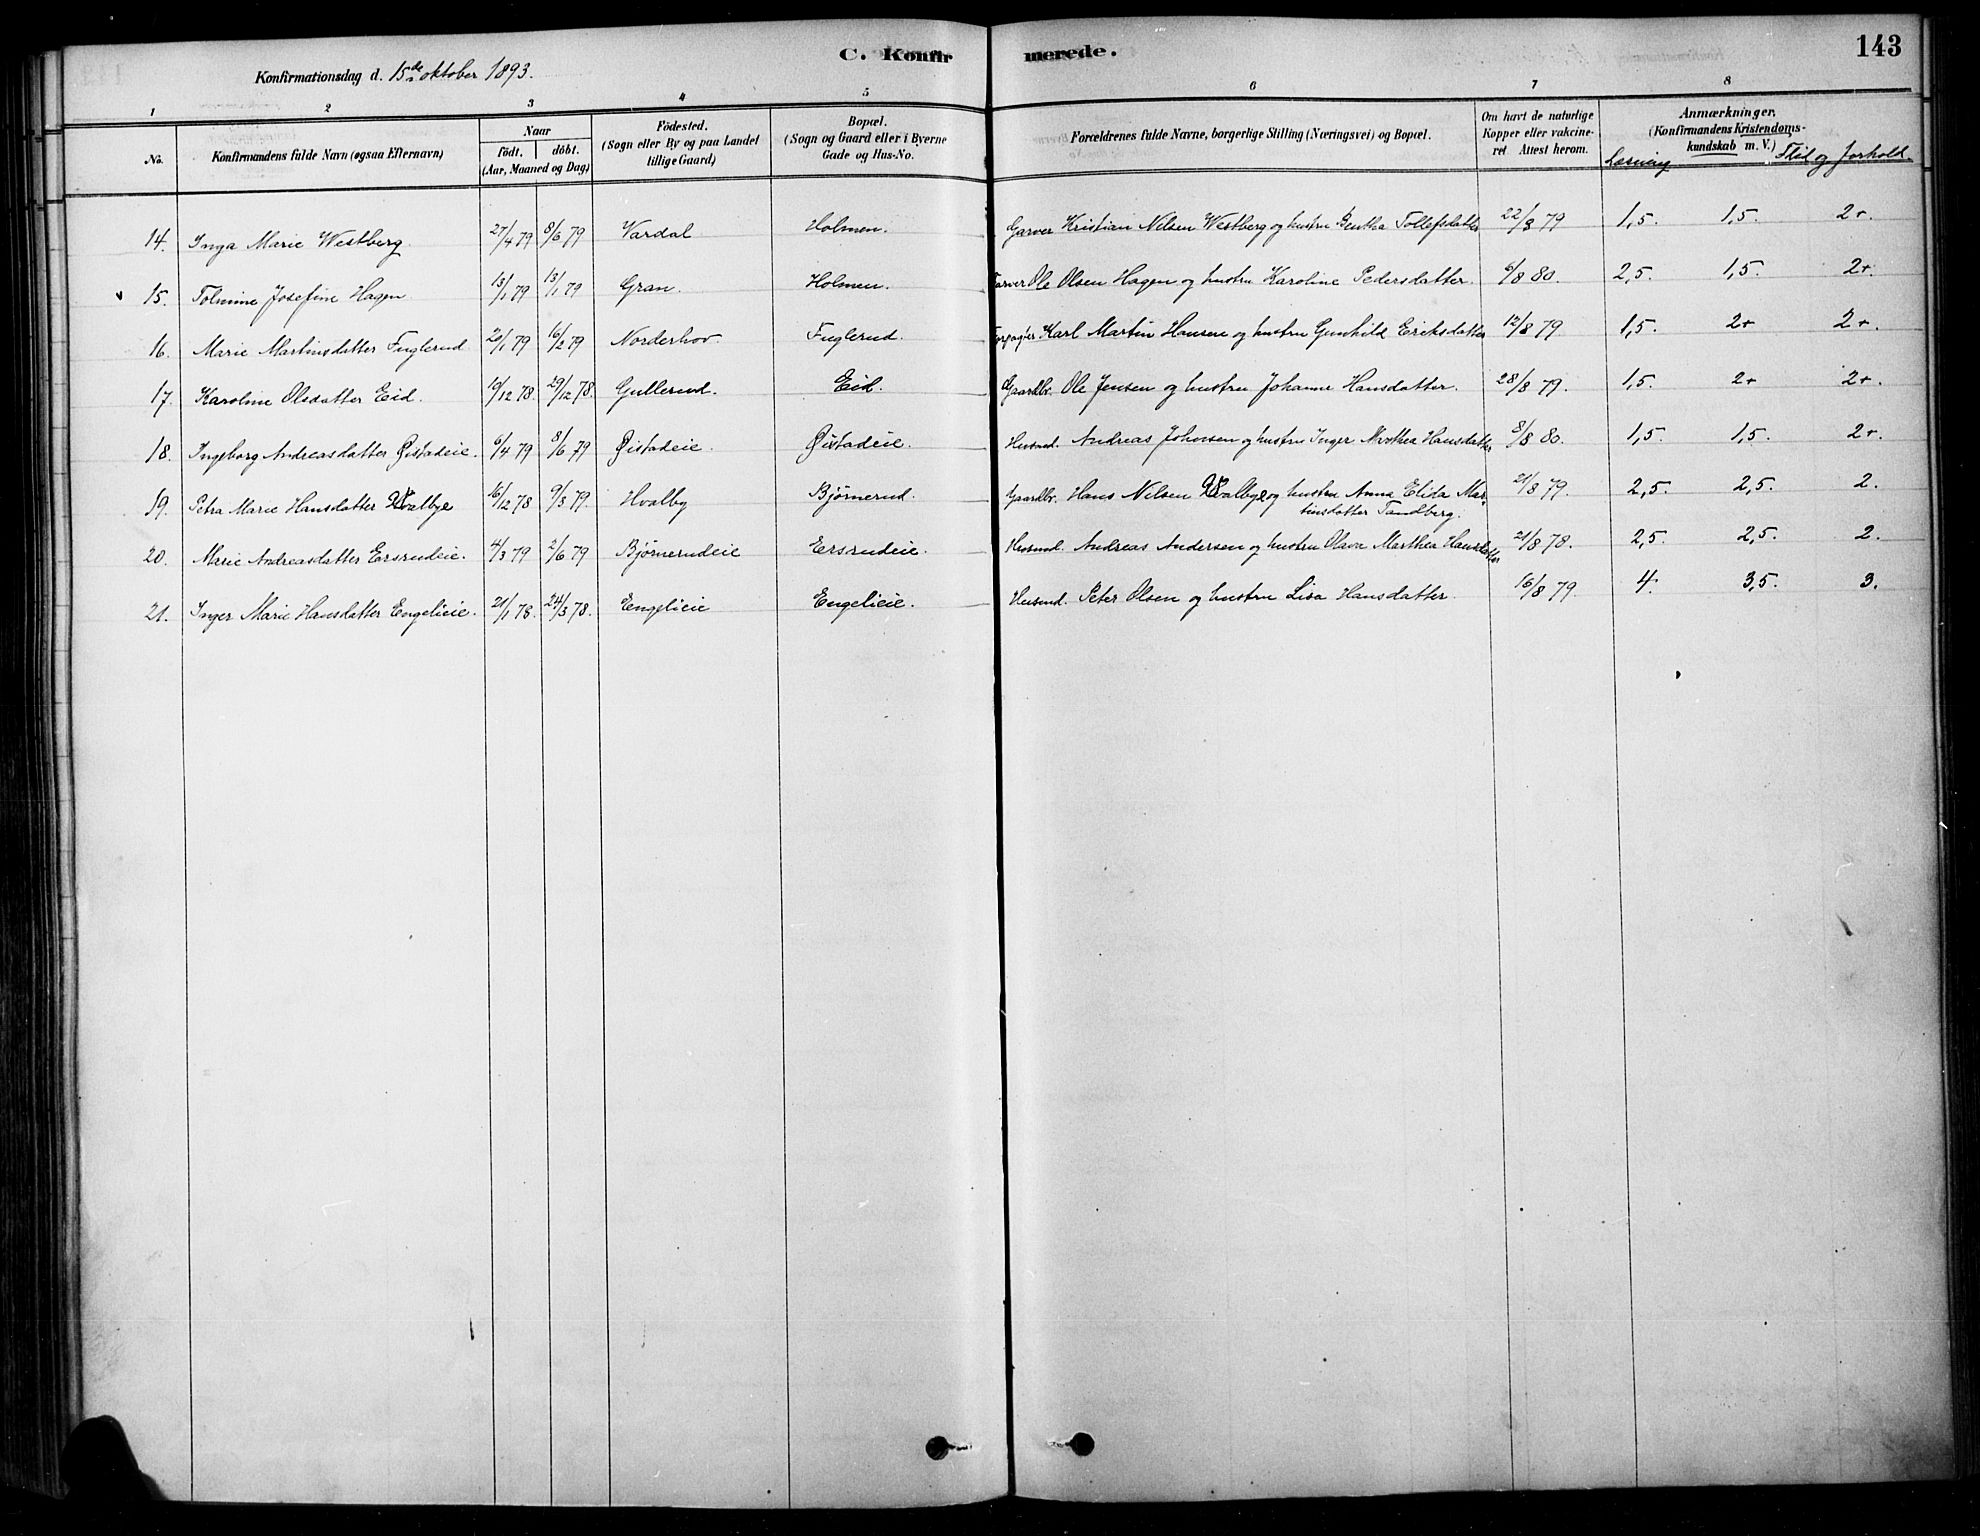 C. Konfirmerede. 143
Konfirmationsdag d. 15de oktober 1893.
1 2 3 4 5 6 7 8
No. Konfirmandens fulde Navn (ogsaa Efternavn) Naar født. døbt. (Aar, Maaned og Dag) Fødested. (Sogn eller By og paa Landet tillige Gaard) Bopæl. (Sogn og Gaard eller i Byerne Gade og Hus-No. Forældrenes fulde Navne, borgerlige Stilling (Næringsvei) og Bopæl. Om havt de naturlige Kopper eller vakcineret Attest herom. Anmærkninger. (Konfirmandens Kristendomskundskab m. V.) Læsning Flid og Forhold.
14. Inga Marie Westberg. 27/4 79 8/6 79 Vardal Holmen. Garver Kristian Nilsen Westberg og hustru Bentha Tollefsdatter 22/8 79 1,5. 1,5. 2+.
15. Josefine Hagen 13/1 79 13/1 79 Gran. Holmen. Farver Ole Olsen Hagen og hustru Karoline Pedersdatter. 6/8 80. 2,5. 1,5. 2+
16. Marie Martinsdatter Fuglerud 20/1 79 16/2 79 Norderhov Fuglerud. Forpagter Karl Martin Hansen og hustru Gunhild Eriksdatter 12/8 79 1,5. 2+ 2+.
17. Karoline Olsdatter Eid. 19/12 78. 29/12 78. Gullerud. Eid. Gaardbr. Ole Jensen og hustru Johanne Hansdatter. 28/8 79. 1,5. 2+ 2+.
18. Ingeborg Andreasdatter Øistadeie. 6/4 79 8/6 79 Øistadeie. Øistadeie. Husmd. Andreas Johnsen og hustru Inger Marthea Hansdatter 8/8 80. 1,5. 1,5. 2+.
19. Petra Marie Hansdatter Hvalbye 16/12 78 9/3 79. Hvalby Bjørnerud. Gaardbr. Hans Nilsen Hvalbye og hustru Anna Elida Mar- 21/8 79. 2,5. 2,5. 2.
tinsdatter Tandberg.
20. Marie Andreasdatter Eersrudeie. 4/3 79 2/6 79 Bjørnerudeie Eersrudeie. Husmd. Andreas Andersen og hustru Olava Marthea Hansdatter 21/8 78. 2,5. 2,5. 2.
21. Inger Marie Hansdatter Engelieie. 21/1 78. 24/3 78. Engelieie Engelieie. Husmd. Peter Olsen og hustru Lisa Hansdatter. 16/8 79 4. 3,5. 3.